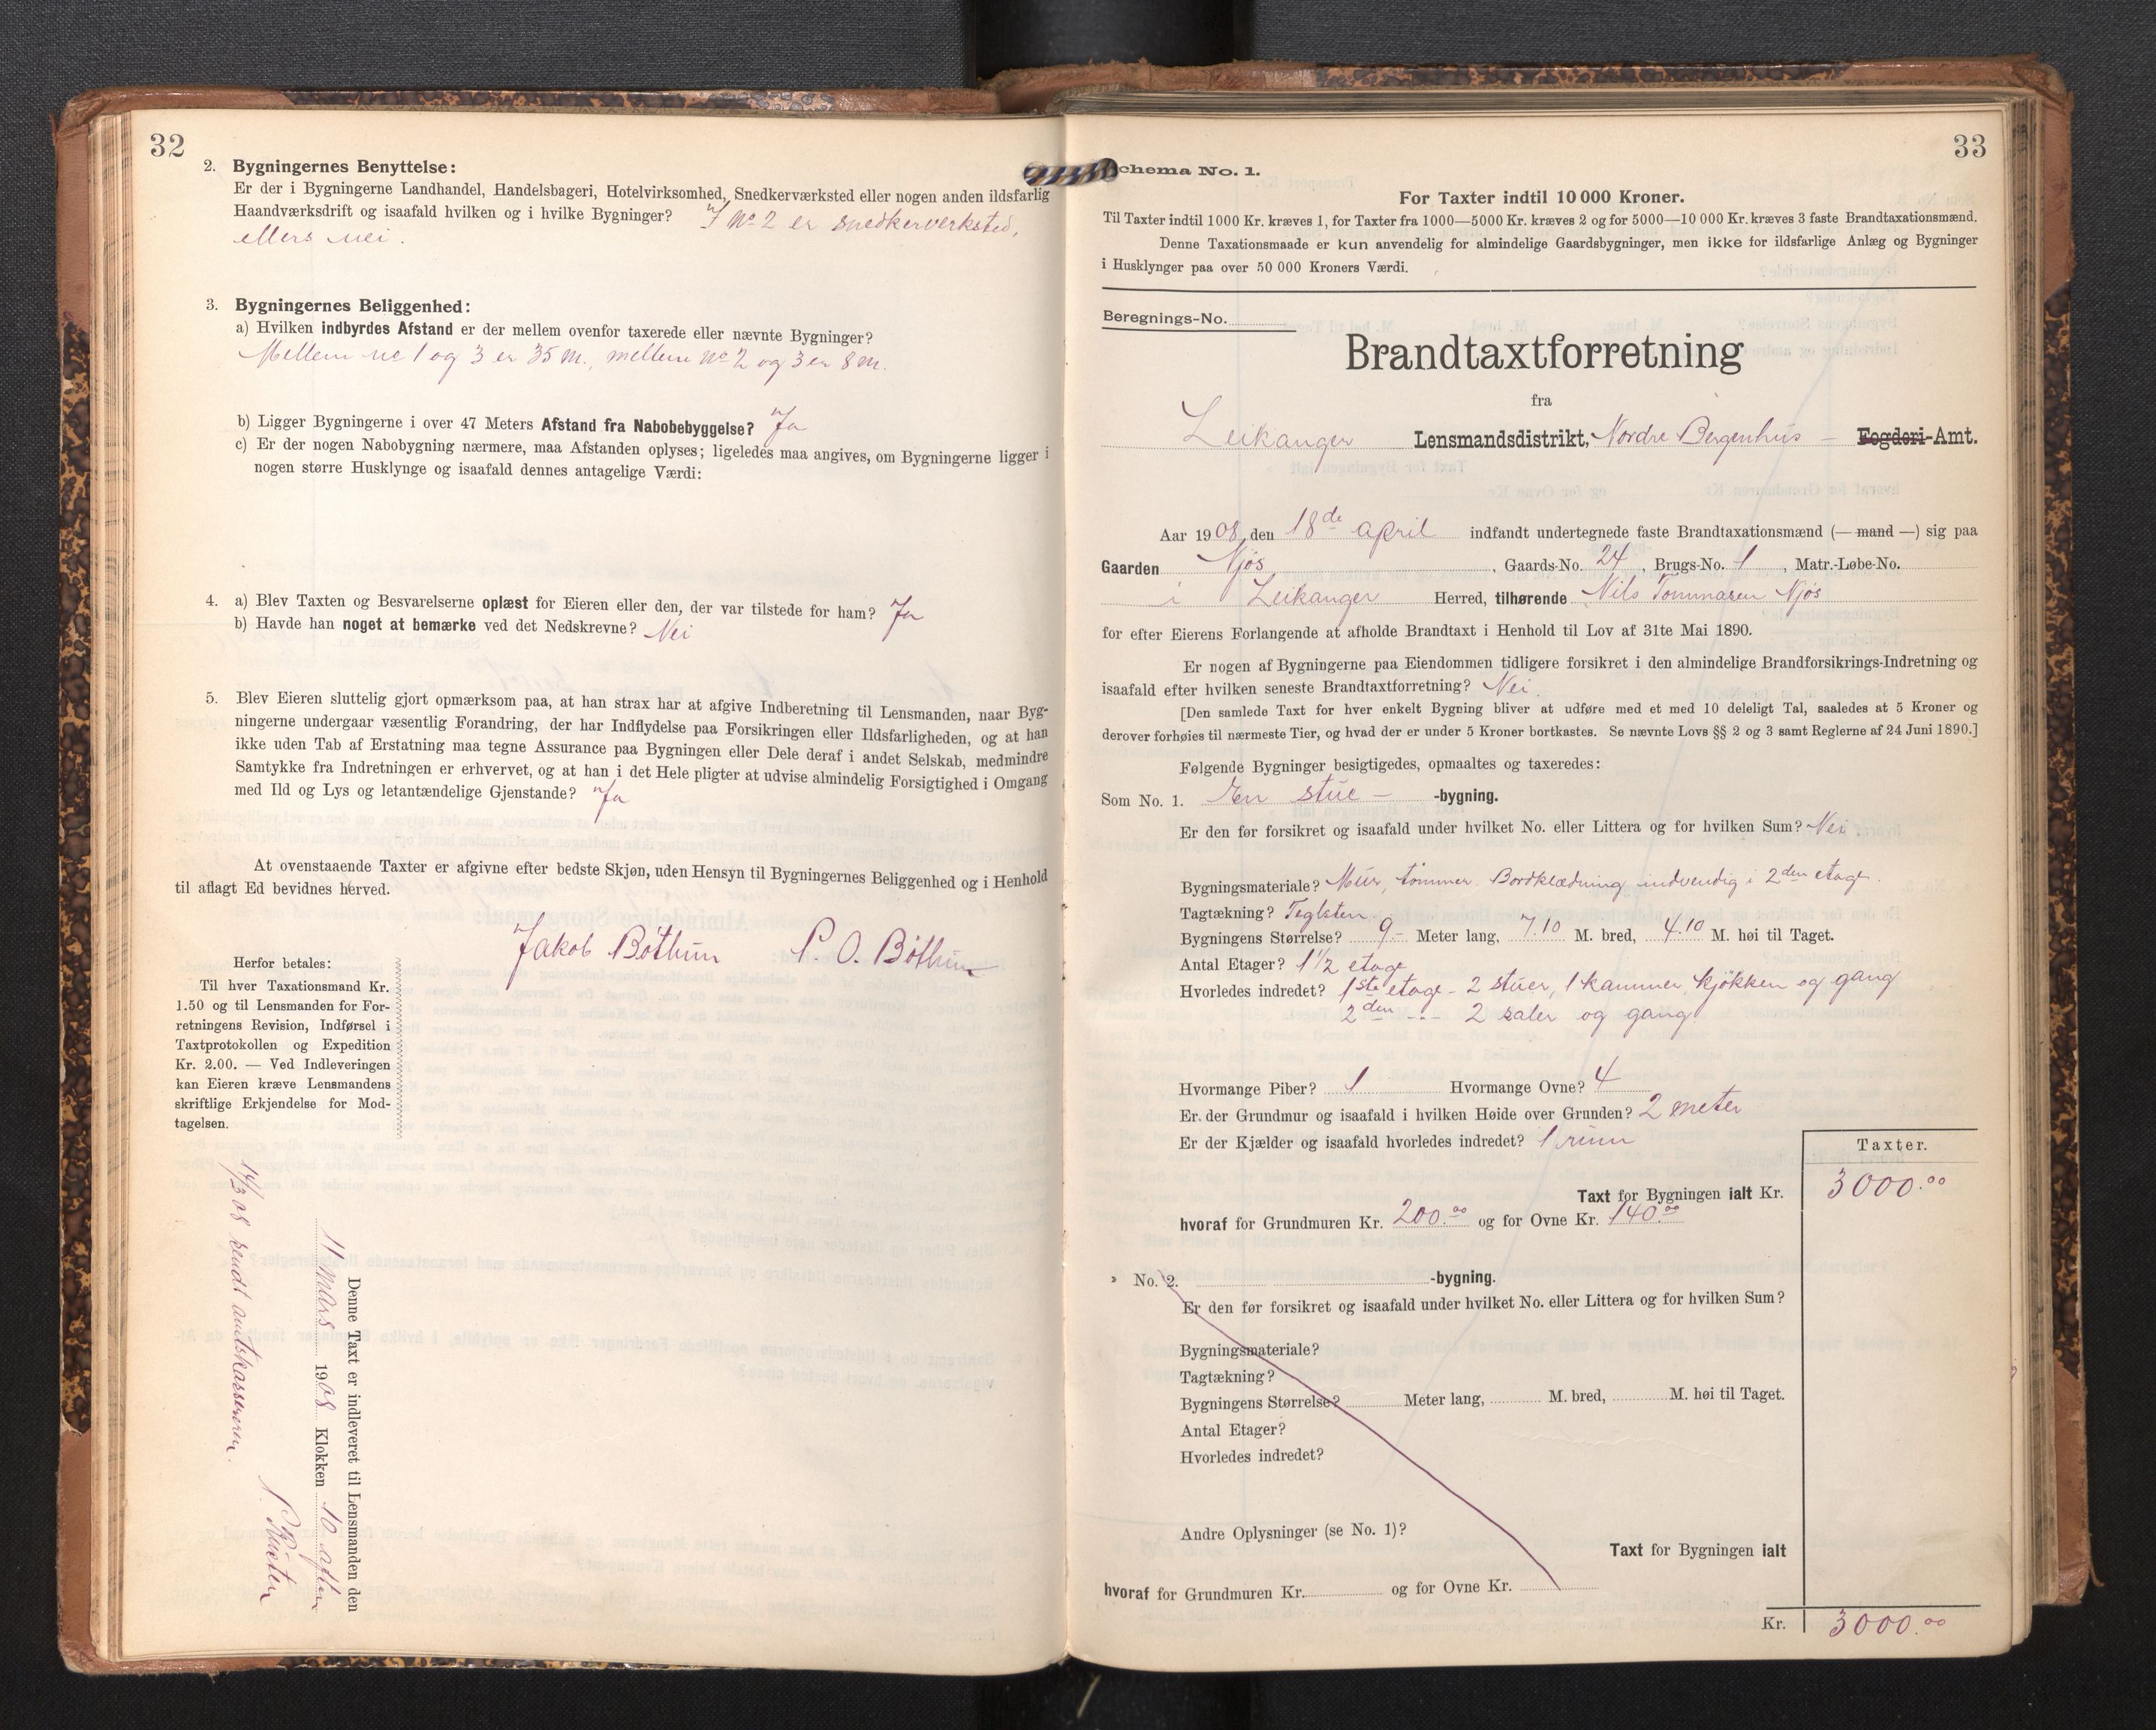 32
2. Bygningernes Benyttelse:
Er der i Bygningerne Landhandel, Handelsbageri, Hotelvirksomhed, Snedkerværksted eller nogen anden ildsfarlig
Haandværksdrift og isaafald hvilken og i hvilke Bygninger? I No 2 er snedkerverksted,
ellers nei.
3. Bygningernes Beliggenhed:
a) Hvilken indbyrdes Afstand er der mellem ovenfor taxerede eller nævnte Bygninger?
Mellem no 1 og 3 er 35 m., mellem No 2 og 3 er 8 m.
b) Ligger Bygningerne i over 47 Meters Afstand fra Nabobebyggelse? Ja
c) Er der nogen Nabobygning nærmere, maa Afstanden oplyses; ligeledes maa angives, om Bygningerne ligger i
nogen større Husklynge og isaafald dennes antagelige Værdi:
4. a) Blev Taxten og Besvarelserne oplæst for Eieren eller den, der var tilstede for ham? Ja
b) Havde han noget at bemærke ved det Nedskrevne? Nei
5. Blev Eieren sluttelig gjort opmærksom paa, at han strax har at afgive Indberetning til Lensmanden, naar Byg-
ningerne undergaar væsentlig Forandring, der har Indflydelse paa Forsikringen eller Ildsfarligheden, og at han
ikke uden Tab af Erstatning maa tegne Assurance paa Bygningen eller Dele deraf i andet Selskab, medmindre
Samtykke fra Indretningen er erhvervet, og at han i det Hele pligter at udvise almindelig Forsigtighed i Omgang
med Ild og Lys og letantændelige Gjenstande? Ja
At ovenstaaende Taxter er afgivne efter bedste Skjøn, uden Hensyn til Bygningernes Beliggenhed og i Henhold
til aflagt Ed bevidnes herved.
Jakob Bøthun P. O. Bøthun
Herfor betales:
Til hver Taxationsmand Kr.
1.50 og til Lensmanden for For-
retningens Revision, Indførsel i
Taxtprotokollen og Expedition
Kr. 2.00. — Ved Indleveringen
kan Eieren kræve Lensmandens
skriftlige Erkjendelse for Mod-
tagelsen.
Denne Taxt er indleveret til Lensmanden den
11 mars 1908 Klokken 10 aften
14/3 08 sendt amtskassereren.
33
Schema No. 1.
For Taxter indtil 10 000 Kroner.
Til Taxter indtil 1000 Kr. kræves 1, for Taxter fra 1000—5000 Kr. kræves 2 og for 5000—10 000 Kr. kræves 3 faste Brandtaxationsmænd.
Denne Taxationsmaade er kun anvendelig for almindelige Gaardsbygninger, men ikke for ildsfarlige Anlæg og Bygninger
i Husklynger paa over 50 000 Kroners Værdi.
Beregnings-No.
Brandtaxtforretning
fra
Leikanger Lensmandsdistrikt, Nordre Bergenhus – Fogderi-Amt.
Aar 1908, den 18de april indfandt undertegnede faste Brandtaxationsmænd (— mand —) sig paa
Gaarden Njøs, Gaards-No. 24, Brugs-No. 1, Matr.-Løbe-No.
i Leikanger Herred, tilhørende Nils Tommasen Njøs
for efter Eierens Forlangende at afholde Brandtaxt i Henhold til Lov af 31te Mai 1890.
Er nogen af Bygningerne paa Eiendommen tidligere forsikret i den almindelige Brandforsikrings-Indretning og
isaafald efter hvilken seneste Brandtaxtforretning? Nei.
[Den samlede Taxt for hver enkelt Bygning bliver at udføre med et med 10 deleligt Tal, saaledes at 5 Kroner og
derover forhøies til nærmeste Tier, og hvad der er under 5 Kroner bortkastes. Se nævnte Lovs §§ 2 og 3 samt Reglerne af 24 Juni 1890.]
Følgende Bygninger besigtigedes, opmaaltes og taxeredes:
Som No. 1. En stue – -bygning.
Er den før forsikret og isaafald under hvilket No. eller Littera og for hvilken Sum? Nei.
Bygningsmateriale? Mur, tømmer. Bordklædning indvendig i 2den etage.
Tagtækning? Teglsten
Bygningens Størrelse? 9.- Meter lang, 7.10 M. bred, 4.10 M. høi til Taget.
Antal Etager? 1 1/2 etage
Hvorledes indredet? 1ste etage - 2 stuer, 1 kammer, kjøkken og gang
2den --- 2 saler og gang.
Hvormange Piber? 1 Hvormange Ovne? 4
Er der Grundmur og isaafald i hvilken Høide over Grunden? 2 meter
Er der Kjælder og isaafald hvorledes indredet? 1 rum
Taxter.
Taxt for Bygningen ialt Kr. 3000.00
hvoraf for Grundmuren Kr. 200.00 og for Ovne Kr. 140.00
» No. 2. -bygning.
Er den før forsikret og isaafald under hvilket No. eller Littera og for hvilken Sum?
Bygningsmateriale?
Tagtækning?
Bygningens Størrelse? Meter lang, M. bred, M. høi til Taget.
Antal Etager?
Hvorledes indredet?
Andre Oplysninger (se No. 1)?
Taxt for Bygningen ialt
hvoraf for Grundmuren Kr. og for Ovne Kr.
Kr. 3000.00